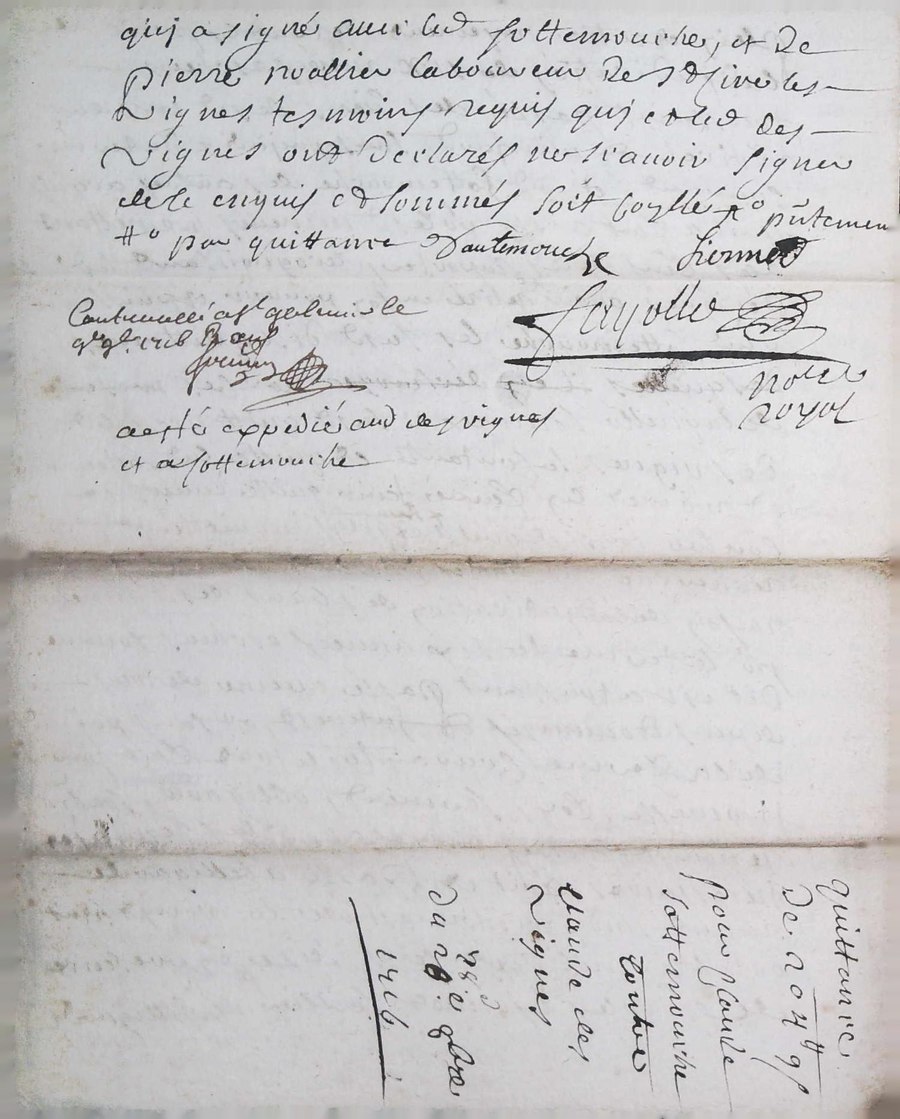 qui a signé avec led sottemouche, et de
pierre noallier laboureur de st sire les
vignes tesmoins requis qui et led des
vignes ont declarés ne scavoir signer
de ce enquis et sommés soit coyllé
par quittance Sautemouche
fayolle
Controuullé a st galmier le
1716
nore
royol
a esté expedié aud desvignes
et a sottemouche
quittance
de 204 ₶
pour Claude
sottemouche
Contre
Claude des
vignes
du 28e
1716